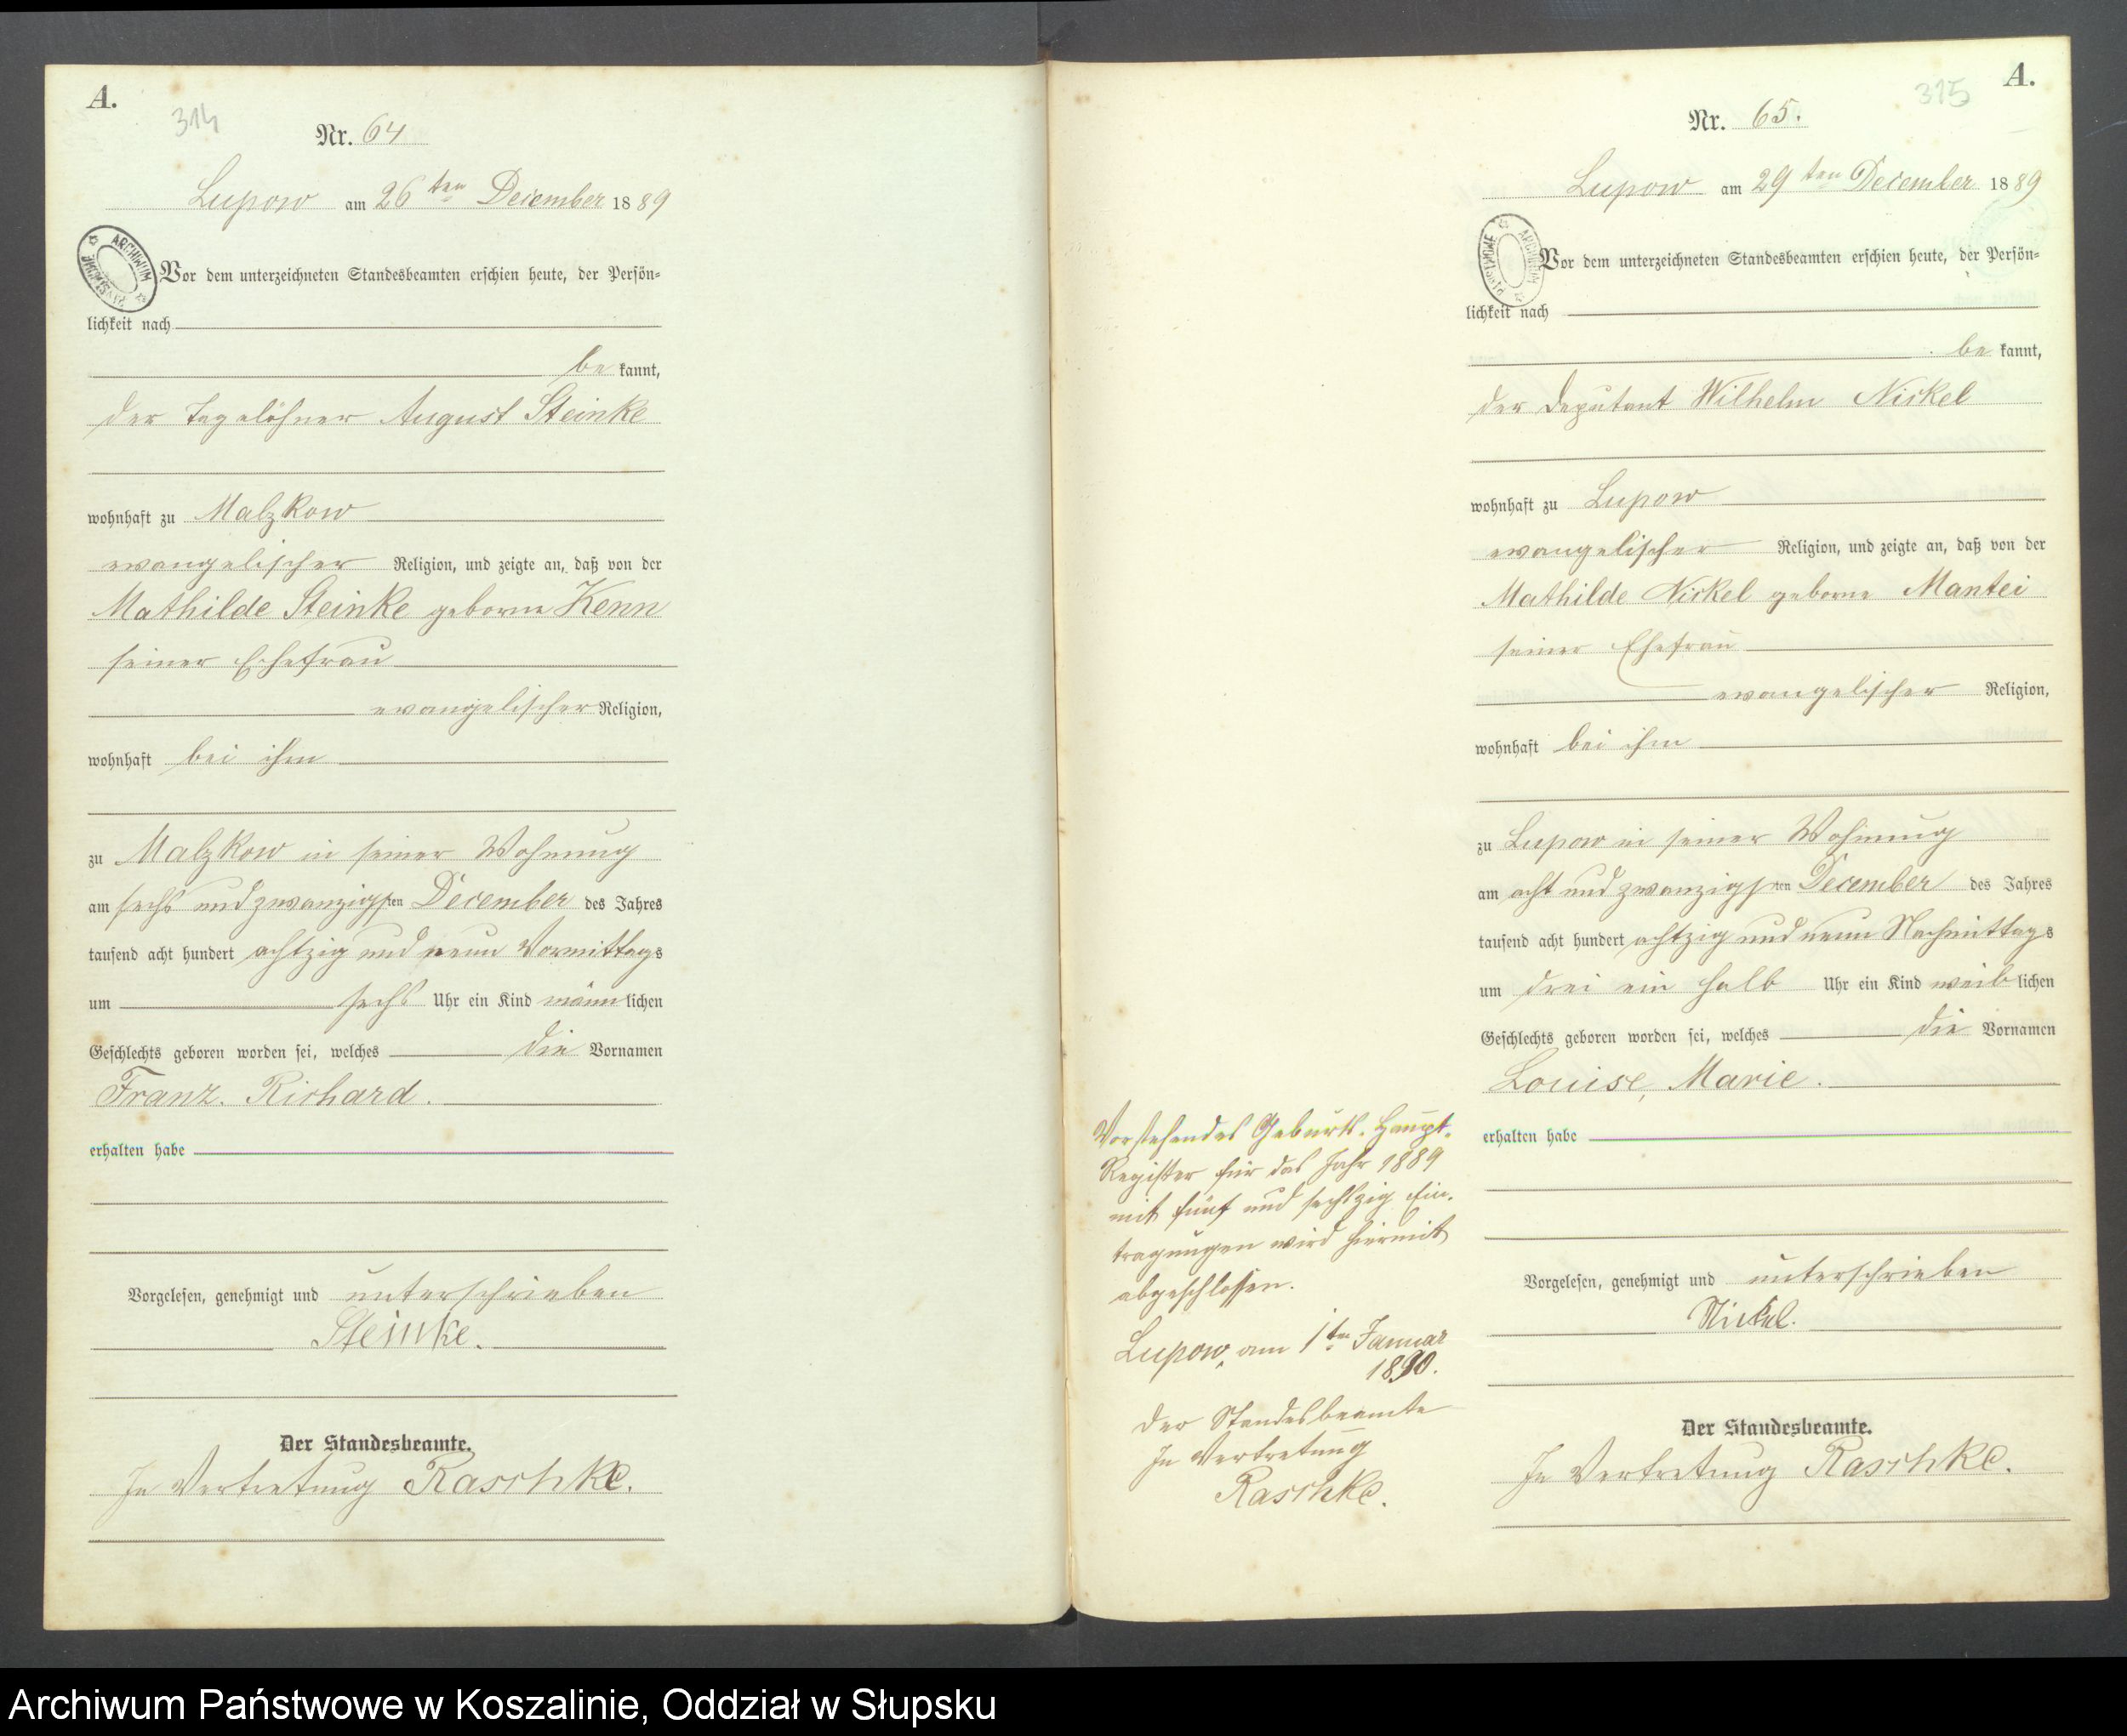 A.
314
Nr. 64
Lupow am 26ten December 1889
ARCHIWUM PAŃSTWOWE
Vor dem unterzeichneten Standesbeamten erschien heute, der Persön=
lichkeit nach
be kannt,
der Tagelöhner August Steinke
wohnhaft zu Malzkow
evangelischer Religion, und zeigte an, daß von der
Mathilde Steinke geborne Kenn
seiner Ehefrau
evangelischer Religion,
wohnhaft bei ihm
zu Malzkow in seiner Wohnung
am sechs und zwanzigsten December des Jahres
tausend acht hundert achtzig und neun Vormittags
um sechs Uhr ein Kind männlichen
Geschlechts geboren worden sei, welches die Vornamen
Franz. Richard.
erhalten habe
Vorgelesen, genehmigt und unterschrieben
Steinke.
Der Standesbeamte.
In Vertretung Raschke.
A.
315
Nr. 65.
Lupow am 29ten December 1889
ARCHIWUM PAŃSTWOWE
Vor dem unterzeichneten Standesbeamten erschien heute, der Persön=
lichkeit nach
be kannt,
der Deputant Wilhelm Nickel
wohnhaft zu Lupow
evangelischer Religion, und zeigte an, daß von der
Mathilde Nickel geborne Mantei
seiner Ehefrau
evangelischer Religion,
wohnhaft bei ihm
zu Lupow in seiner Wohnung
am acht und zwanzigsten December des Jahres
tausend acht hundert achtzig und neun Nachmittags
um drei ein halb Uhr ein Kind weiblichen
Geschlechts geboren worden sei, welches die Vornamen
Louise, Marie.
erhalten habe
Vorgelesen, genehmigt und unterschrieben
Nickel.
Der Standesbeamte.
In Vertretung Raschke.
Vorstehendes Geburts-Haupt-
Register für das Jahr 1889
mit fünf und sechszig Ein-
tragungen wird hiermit
abgeschlossen.
Lupow, am 1ten Januar
1890.
Der Standesbeamte
In Vertretung
Raschke.
Archiwum Państwowe w Koszalinie, Oddział w Słupsku